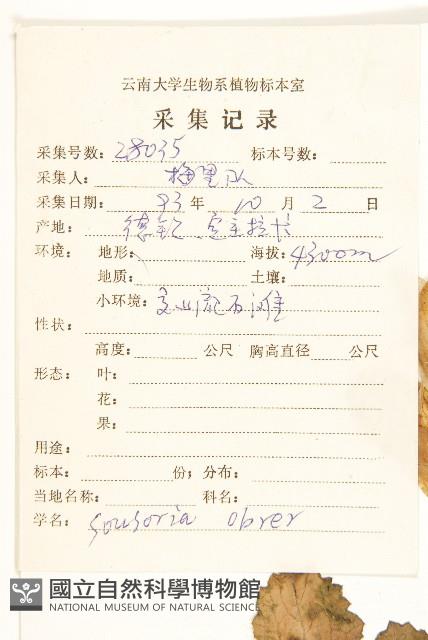 云南大学生物系植物标本室
采集记录
采集号数: 28035 标本号数:
采集人: 梅里队
采集日期: 93 年 10 月 2 日
产地: 德钦
环境: 地形: 海拔: 4300m
地质: 土壤:
小环境: 高山流石滩
性状:
高度: 公尺 胸高直径 公尺
形态: 叶:
花:
果:
用途:
标本: 份; 分布:
当地名称: 科名:
学名: Sousoria obrer
國立自然科學博物館
NATIONAL MUSEUM OF NATURAL SCIENCE